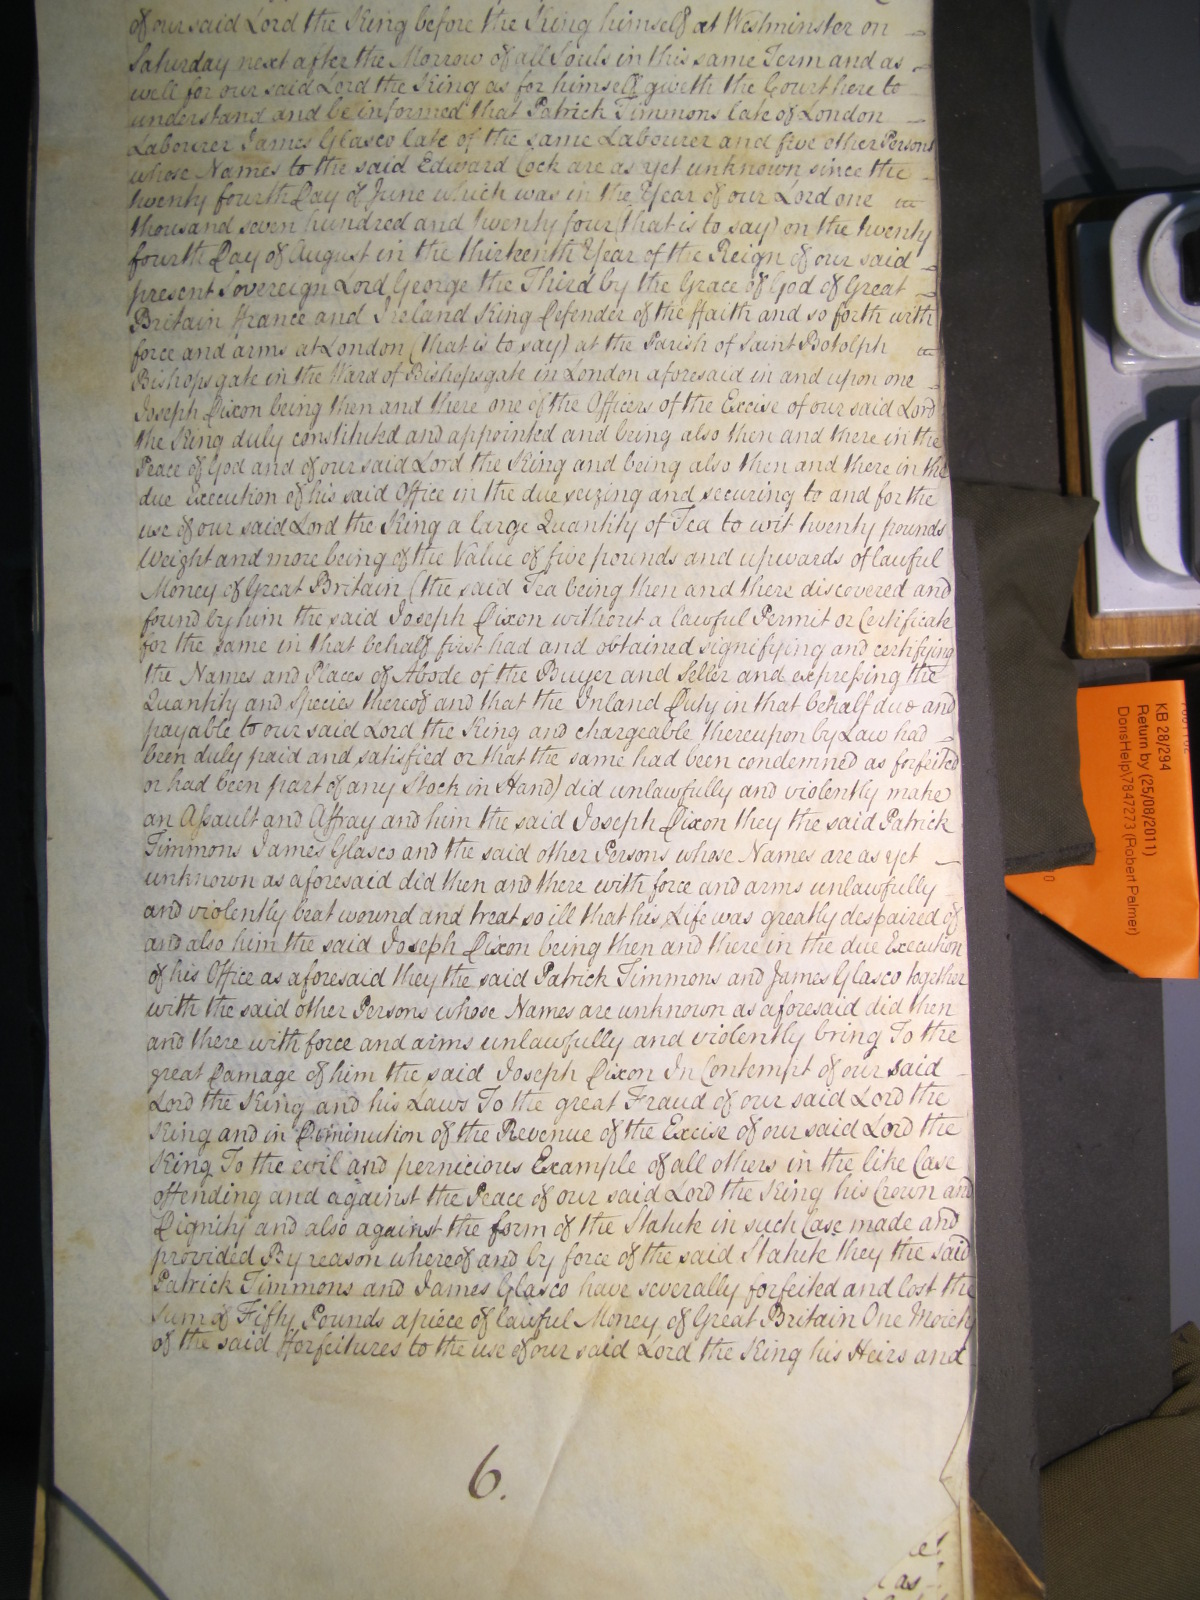 of our said Lord the King before the King himself at Westminster on
Saturday next after the Morrow of all Souls in this same Term and as
well for our said Lord the King as for himself giveth the Court here to
understand and be informed that Patrick Timmons late of London
Labourer James Glasco late of the same Labourer and five other Persons
whose Names to the said Edward Cock are as yet unknown since the
twenty fourth Day of June which was in the Year of our Lord one
thousand seven hundred and twenty four (that is to say) on the twenty
fourth Day of August in the thirteenth Year of the Reign of our said
present Sovereign Lord George the Third by the Grace of God of Great
Britain France and Ireland King Defender of the Faith and so forth with
force and arms at London (that is to say) at the Parish of Saint Botolph
Bishopsgate in the Ward of Bishopsgate in London aforesaid in and upon one
Joseph Dixon being then and there one of the Officers of the Excise of our said Lord
the King duly constituted and appointed and being also then and there in the
Peace of God and of our said Lord the King and being also then and there in the
due Execution of his said Office in the due seizing and securing to and for the
use of our said Lord the King a large Quantity of Tea to wit twenty pounds
Weight and more being of the Value of five pounds and upwards of lawful
Money of Great Britain (the said Tea being then and there discovered and
found by him the said Joseph Dixon without a lawful Permit or Certificate
for the same in that behalf first had and obtained signifying and certifying
the Names and Places of Abode of the Buyer and Seller and expressing the
Quantity and Species thereof and that the Inland Duty in that behalf due and
payable to our said Lord the King and chargeable thereupon by Law had
been duly paid and satisfied or that the same had been condemned as forfeited
or had been part of any Stock in Hand) did unlawfully and violently make
an Assault and Affray and him the said Joseph Dixon they the said Patrick
Timmons James Glasco and the said other Persons whose Names are as yet
unknown as aforesaid did then and there with force and arms unlawfully
and violently beat wound and treat so ill that his Life was greatly despaired of
and also him the said Joseph Dixon being then and there in the due Execution
of his Office as aforesaid they the said Patrick Timmons and James Glasco together
with the said other Persons whose Names are unknown as aforesaid did then
and there with force and arms unlawfully and violently bring To the
great Damage of him the said Joseph Dixon In Contempt of our said
Lord the King and his Laws To the great Fraud of our said Lord the
King and in Diminution of the Revenue of the Excise of our said Lord the
King To the evil and pernicious Example of all others in the like Case
offending and against the Peace of our said Lord the King his Crown and
Dignity and also against the form of the Statute in such Case made and
provided By reason whereof and by force of the said Statute they the said
Patrick Timmons and James Glasco have severally forfeited and lost the
Sum of Fifty Pounds apiece of lawful Money of Great Britain One Moiety
of the said Forfeitures to the use of our said Lord the King his Heirs and
6.
as
KB 28/294
Return by (25/08/2011)
DorisHelp\7847273 (Robert Palmer)
0